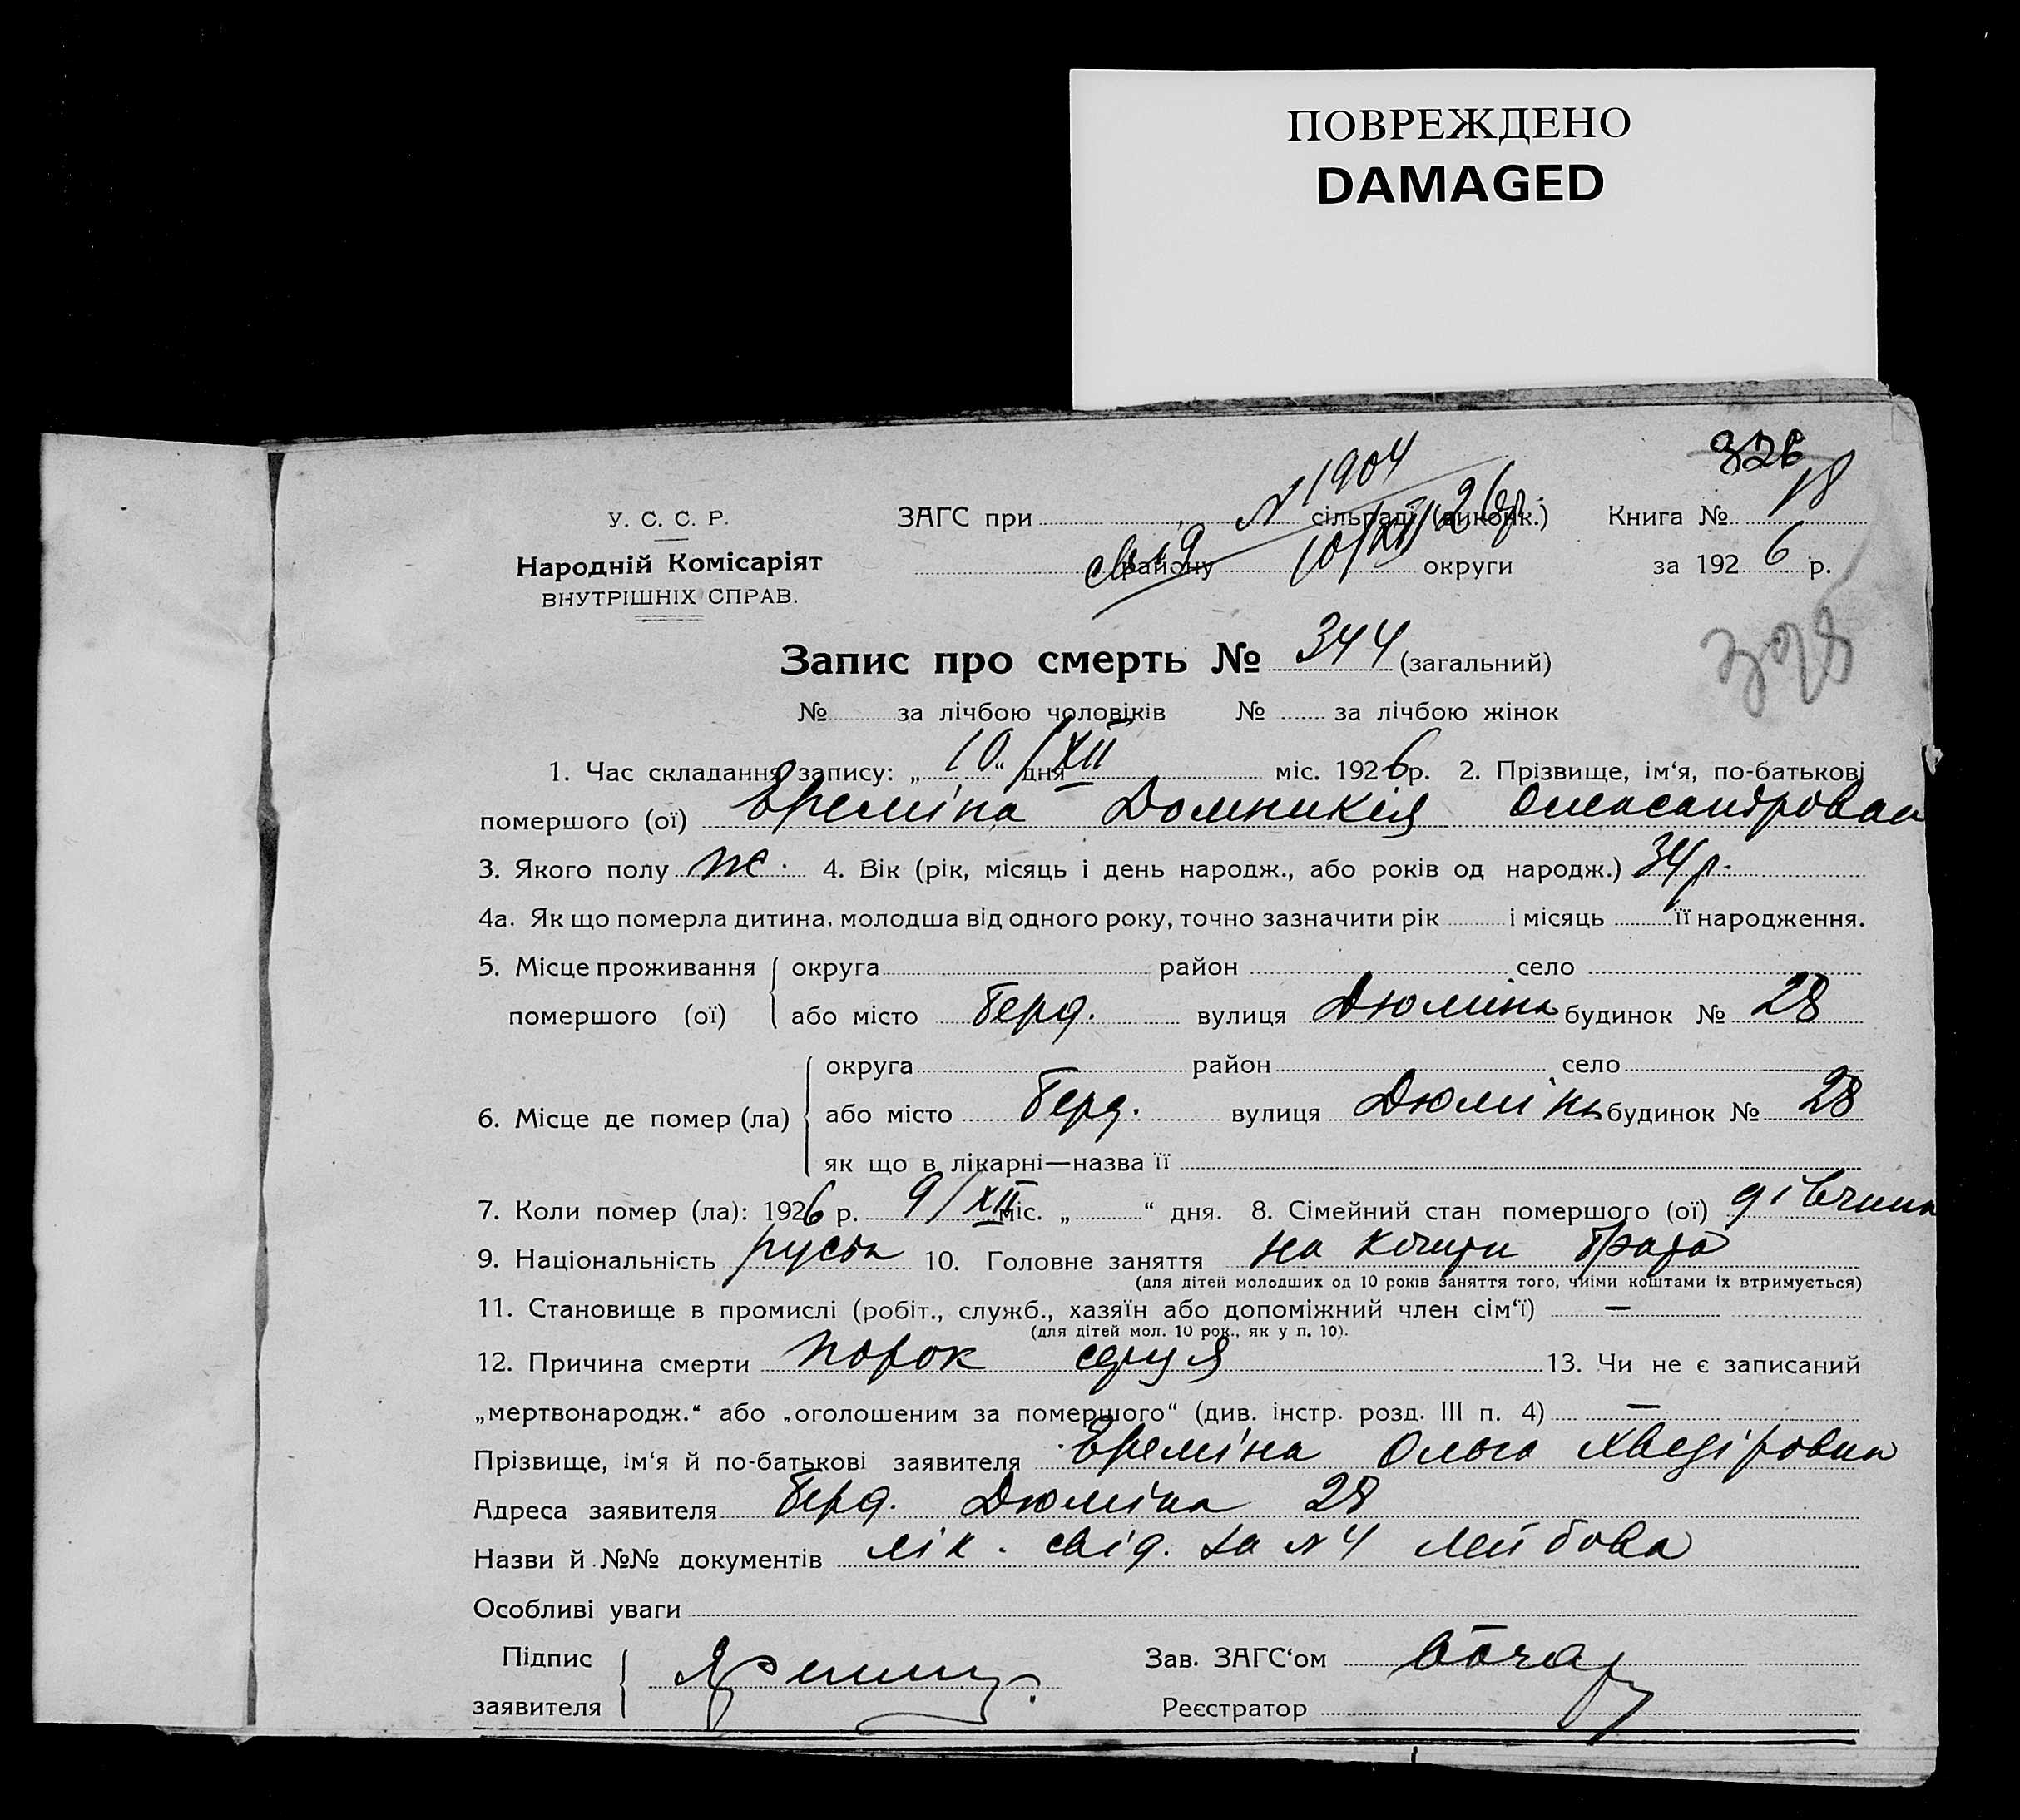 ПОВРЕЖДЕНО
DAMAGED
326
У. С. С. Р.
Народній Комісаріят
ВНУТРІШНІХ СПРАВ.
ЗАГС при сільраді (виконк.) Книга № 18
N 1904
району округи за 1926 р.
свід 10/XII 26р.
Запис про смерть № 344 (загальний)
398
№ за лічбою чоловіків № за лічбою жінок
1. Час складання запису: „10“ дня XII міс. 1926 р. 2. Прізвище, ім‘я, по-батькові
помершого (ої) Ереміна Домникія Олександровна
3. Якого полу ж. 4. Вік (рік, місяць і день народж., або років од народж.) 34 р.
4а. Як що померла дитина, молодша від одного року, точно зазначити рік і місяць її народження.
5. Місце проживання помершого (ої) округа район село
або місто Берд. вулиця Дюмінь будинок № 28
6. Місце де помер (ла) округа район село
або місто Берд. вулиця Дюмінь будинок № 28
як що в лікарні—назва її
7. Коли помер (ла): 1926 р. 9/XII міс. „ “ дня. 8. Сімейний стан помершого (ої) дівчина
9. Національність руська 10. Головне заняття на кошти брата
(для дітей молодших од 10 років заняття того, чиїми коштами їх втримується)
11. Становище в промислі (робіт., служб., хазяїн або допоміжний член сім‘ї) —
(для дітей мол. 10 рок., як у п. 10).
12. Причина смерти порок серця 13. Чи не є записаний
„мертвонародж.“ або „оголошеним за помершого“ (див. інстр. розд. III п. 4) —
Прізвище, ім‘я й по-батькові заявителя Ереміна Ольга Хведіровна
Адреса заявителя Берд. Дюміна 28
Назви й №№ документів лік. свід. за N 4 Лейбова
Особливі уваги
Підпис заявителя
Зав. ЗАГС‘ом
Реєстратор